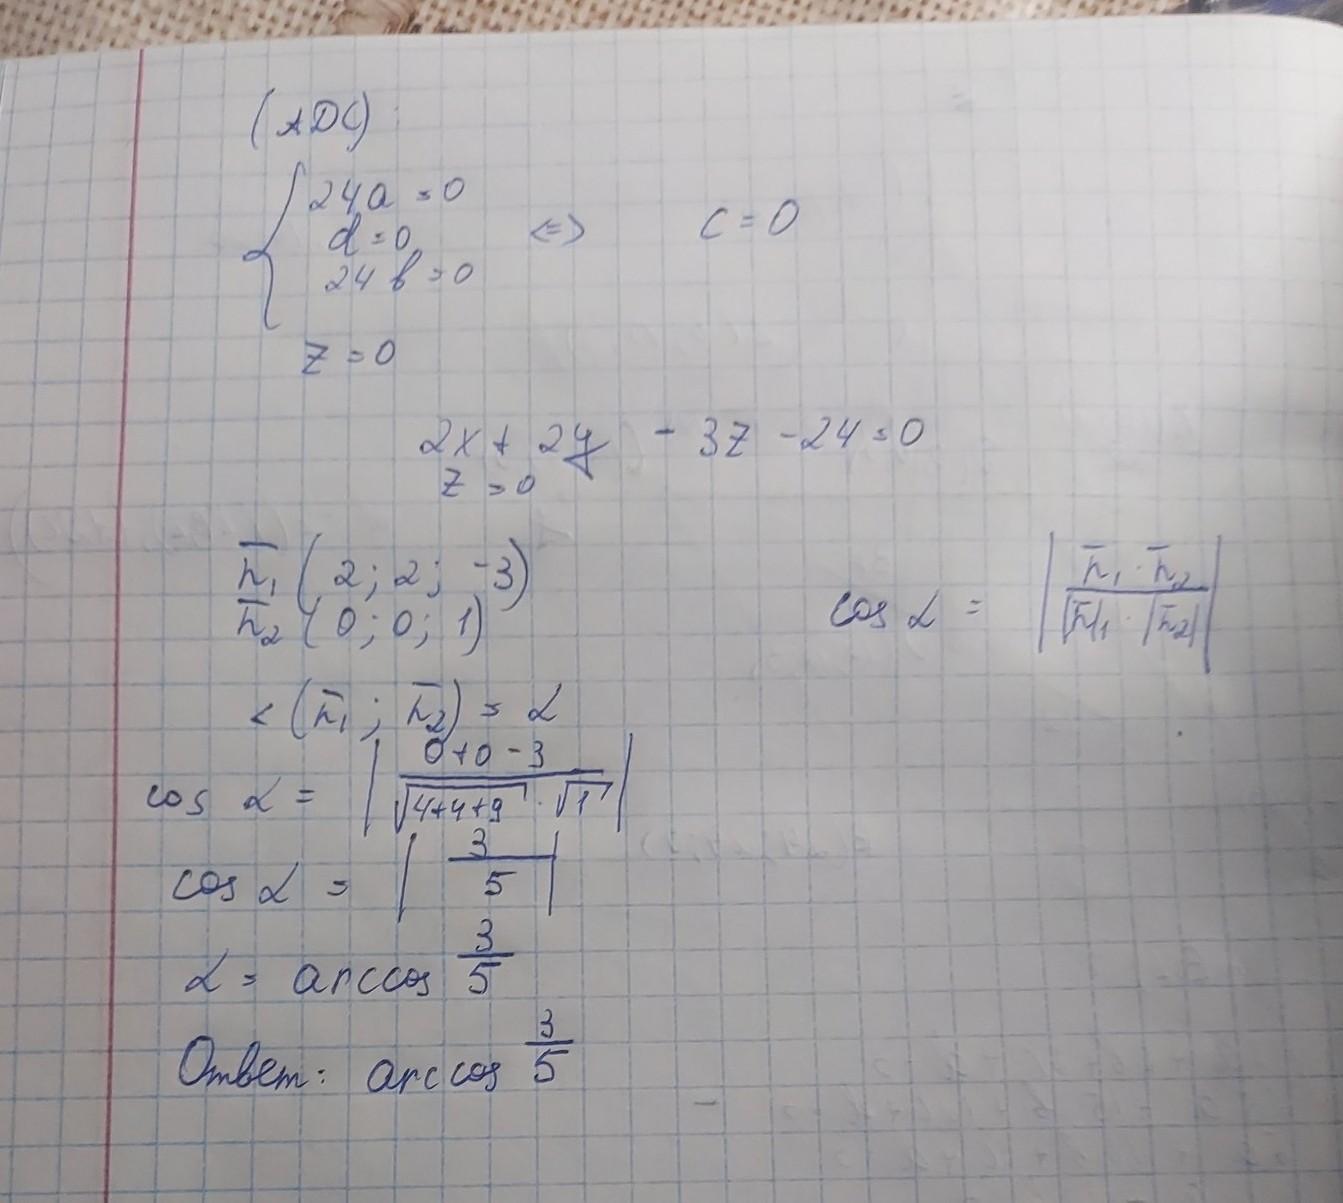 (ADC)
{ 24a = 0
d = 0 <=> c = 0
24b = 0
z = 0
2x + 2y - 3z - 24 = 0
z = 0
n̄₁ (2; 2; -3)
n̄₂ (0; 0; 1)
cos α = | n̄₁ · n̄₂ / |n̄|₁ · |n̄₂| |
< (n̄₁ ; n̄₂) = α
cos α = | 0+0-3 / √4+4+9 · √1 |
cos α = | 3 / 5 |
α = arccos 3/5
Ответ: arccos 3/5